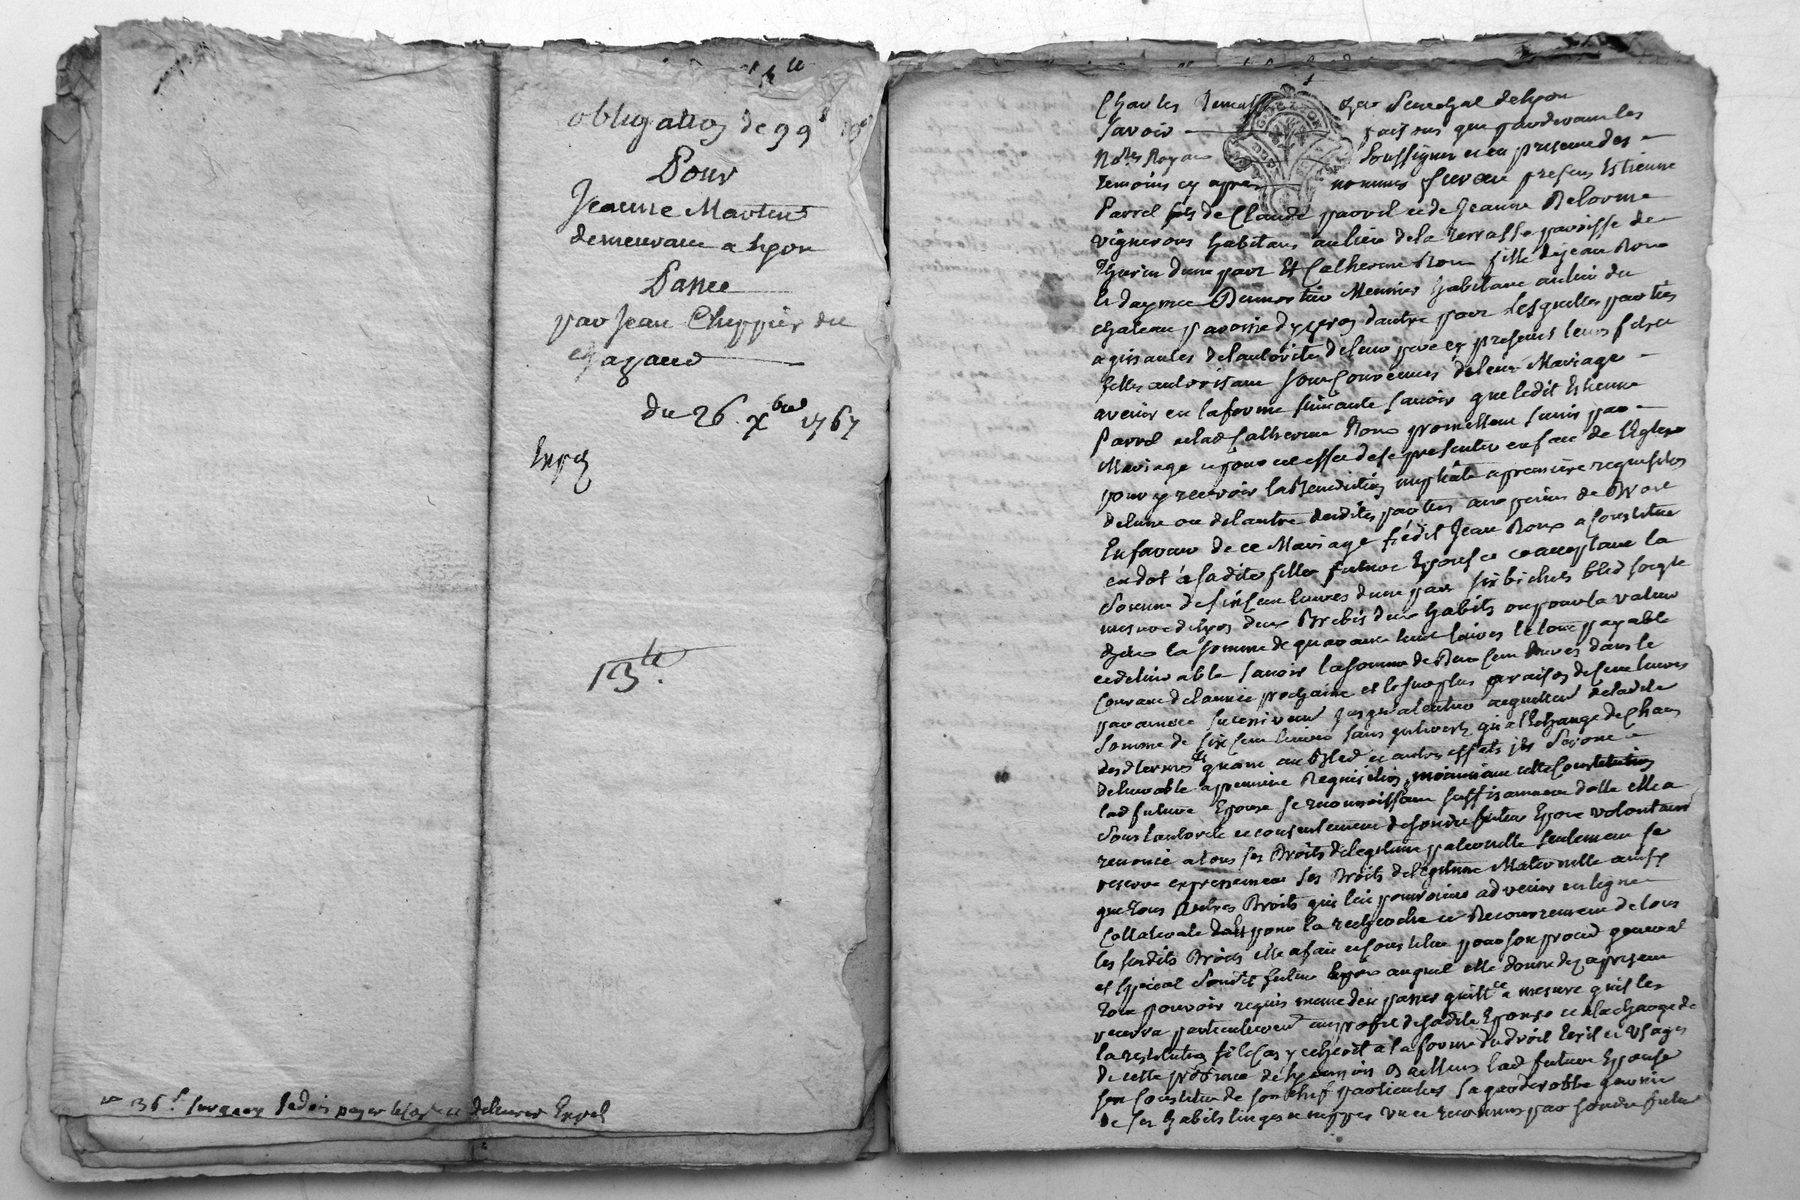 obligation de 99
Pour
Jeanne Martin
demeurant a Lyon
Passee
par Jean Cheppier de
Chazaud
du 26. Xbre 1767
Expé
13te.
Sur quoy Je dois payer et delivrer Expé
Charles Senechal de Lyon
Savoir faisons que pardevant les
Nores Royaux soussignes et en presence des
temoins cy apres nommes furent presens Estienne
parrel fils de Claude parrel et de Jeanne Delorme
vignerons habitans au lieu de la terrasse paroisse de
Thurin d'une part Et Catherine Roux fille de jean Roux
habitant au lieu du
chateau paroisse d'yzeron d'autre part Lesquelles parties
agissantes de l'autorité de leur pere cy presents leurs fils et
filles autorisant sont convenues de leur Mariage
avenir en la forme suivante savoir que ledit Estienne
parrel et lad Catherine Roux promettent s'unir par
Mariage et pour cet effet de se presenter en face de l'Eglise
pour y recevoir la Benediction nuptiale a premiere requisition
de l'une ou de l'autre desdites parties aux peines de Droit
En faveur de ce Mariage ledit Jean Roux a constitué
en dot a sadite fille future Epouse ce acceptant la
somme de six cent livres d'une part six bichets bled soigle
mesure de Lyon deux Brebis deux habits ou pour la valeur
d'iceux la somme de quarante huit livres le tout payable
et delivrable savoir la somme de Deux cent livres dans le
courant de l'année prochaine et le surplus a raison de cent livres
par année successivement jusqu'a l'entier acquittement de ladite
somme de six cent livres sans interets qu'a l'echange de chacun
des termes quant au Bled et autres effets ils seront
delivrable a premiere Requisition, moienant cette Constitution
lad future Epouse se reconnoissant suffisamment dotée elle a
sous l'autorité et consentement de sondit futur Epoux volontairemt
renoncé a tous ses Droits de legitime paternelle seulement se
reserve expressement ses Droits de legitime Maternelle ainsy
que tous autres Droits qui luy pourroient advenir en ligne
Collaterale et pour la recherche et Recouvrement de tous
les susdits Droits elle a fait et constitué pour son procur general
et special sondit futur Epoux auquel elle donne des a present
tout pouvoir requis meme d'en passer quittce a mesure qu'il les
recevra particulierement au profit de sadite Epouse et a la charge de
la restitution si le Cas y echeoit a la forme du droit Ecrit et Usages
de cette province de Lyonnois D'ailleurs lad future Epouse
se constitue de son chef particulier sa garderobbe garnie
de ses habits linges et nippes vu et reconnus par sondit futur